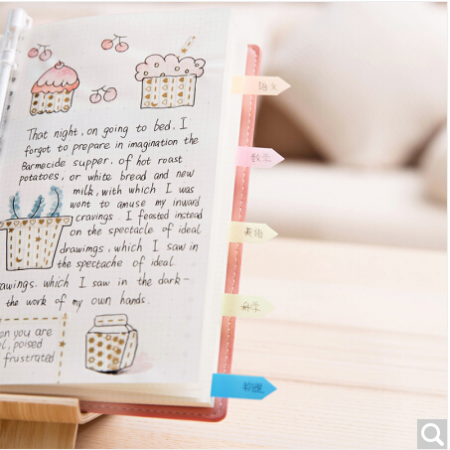 That night, on going to bed, I
forgot to prepare in imagination the
Barmecide supper. of hot roast
potatoes, or white bread and new
milk, with which I was
wont to amuse my inward
cravings. I feasted instead
on the spectacle of ideal
drawimgs, which I saw in
the spectache of ideal.
awings. which I saw in the dark-
the work of my own hands.
en you are
l, poised
frustrated
语文
数学
英语